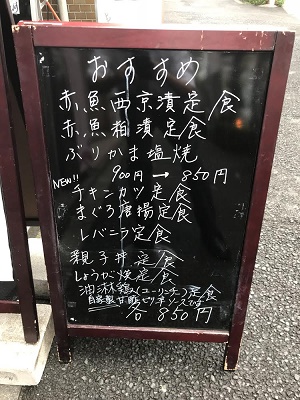 おすすめ
赤魚西京漬定食
赤魚粕漬定食
ぶりかま塩焼
900円→850円
NEW!!
チキンカツ定食
まぐろ唐揚定食
レバニラ定食
親子丼定食
しょうが焼定食
油淋鶏(ユーリンチ)定食
自家製甘酢ピリ辛ソースです
各850円